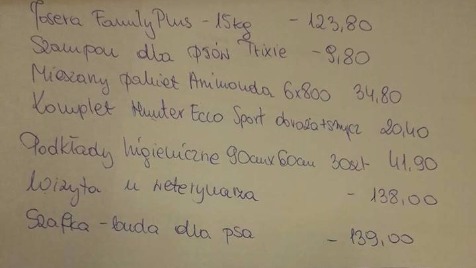 Josera FamilyPlus - 15kg - 123,80
Szampon dla psów Trixie - 9,80
Mieszany pakiet Animonda 6x800 34,80
Komplet Hunter Ecco Sport 20,40
Podkłady higieniczne 90cmx60cm 30szt- 41,90
Wizyta u weterynarza - 138,00
Szafka - buda dla psa - 139,00